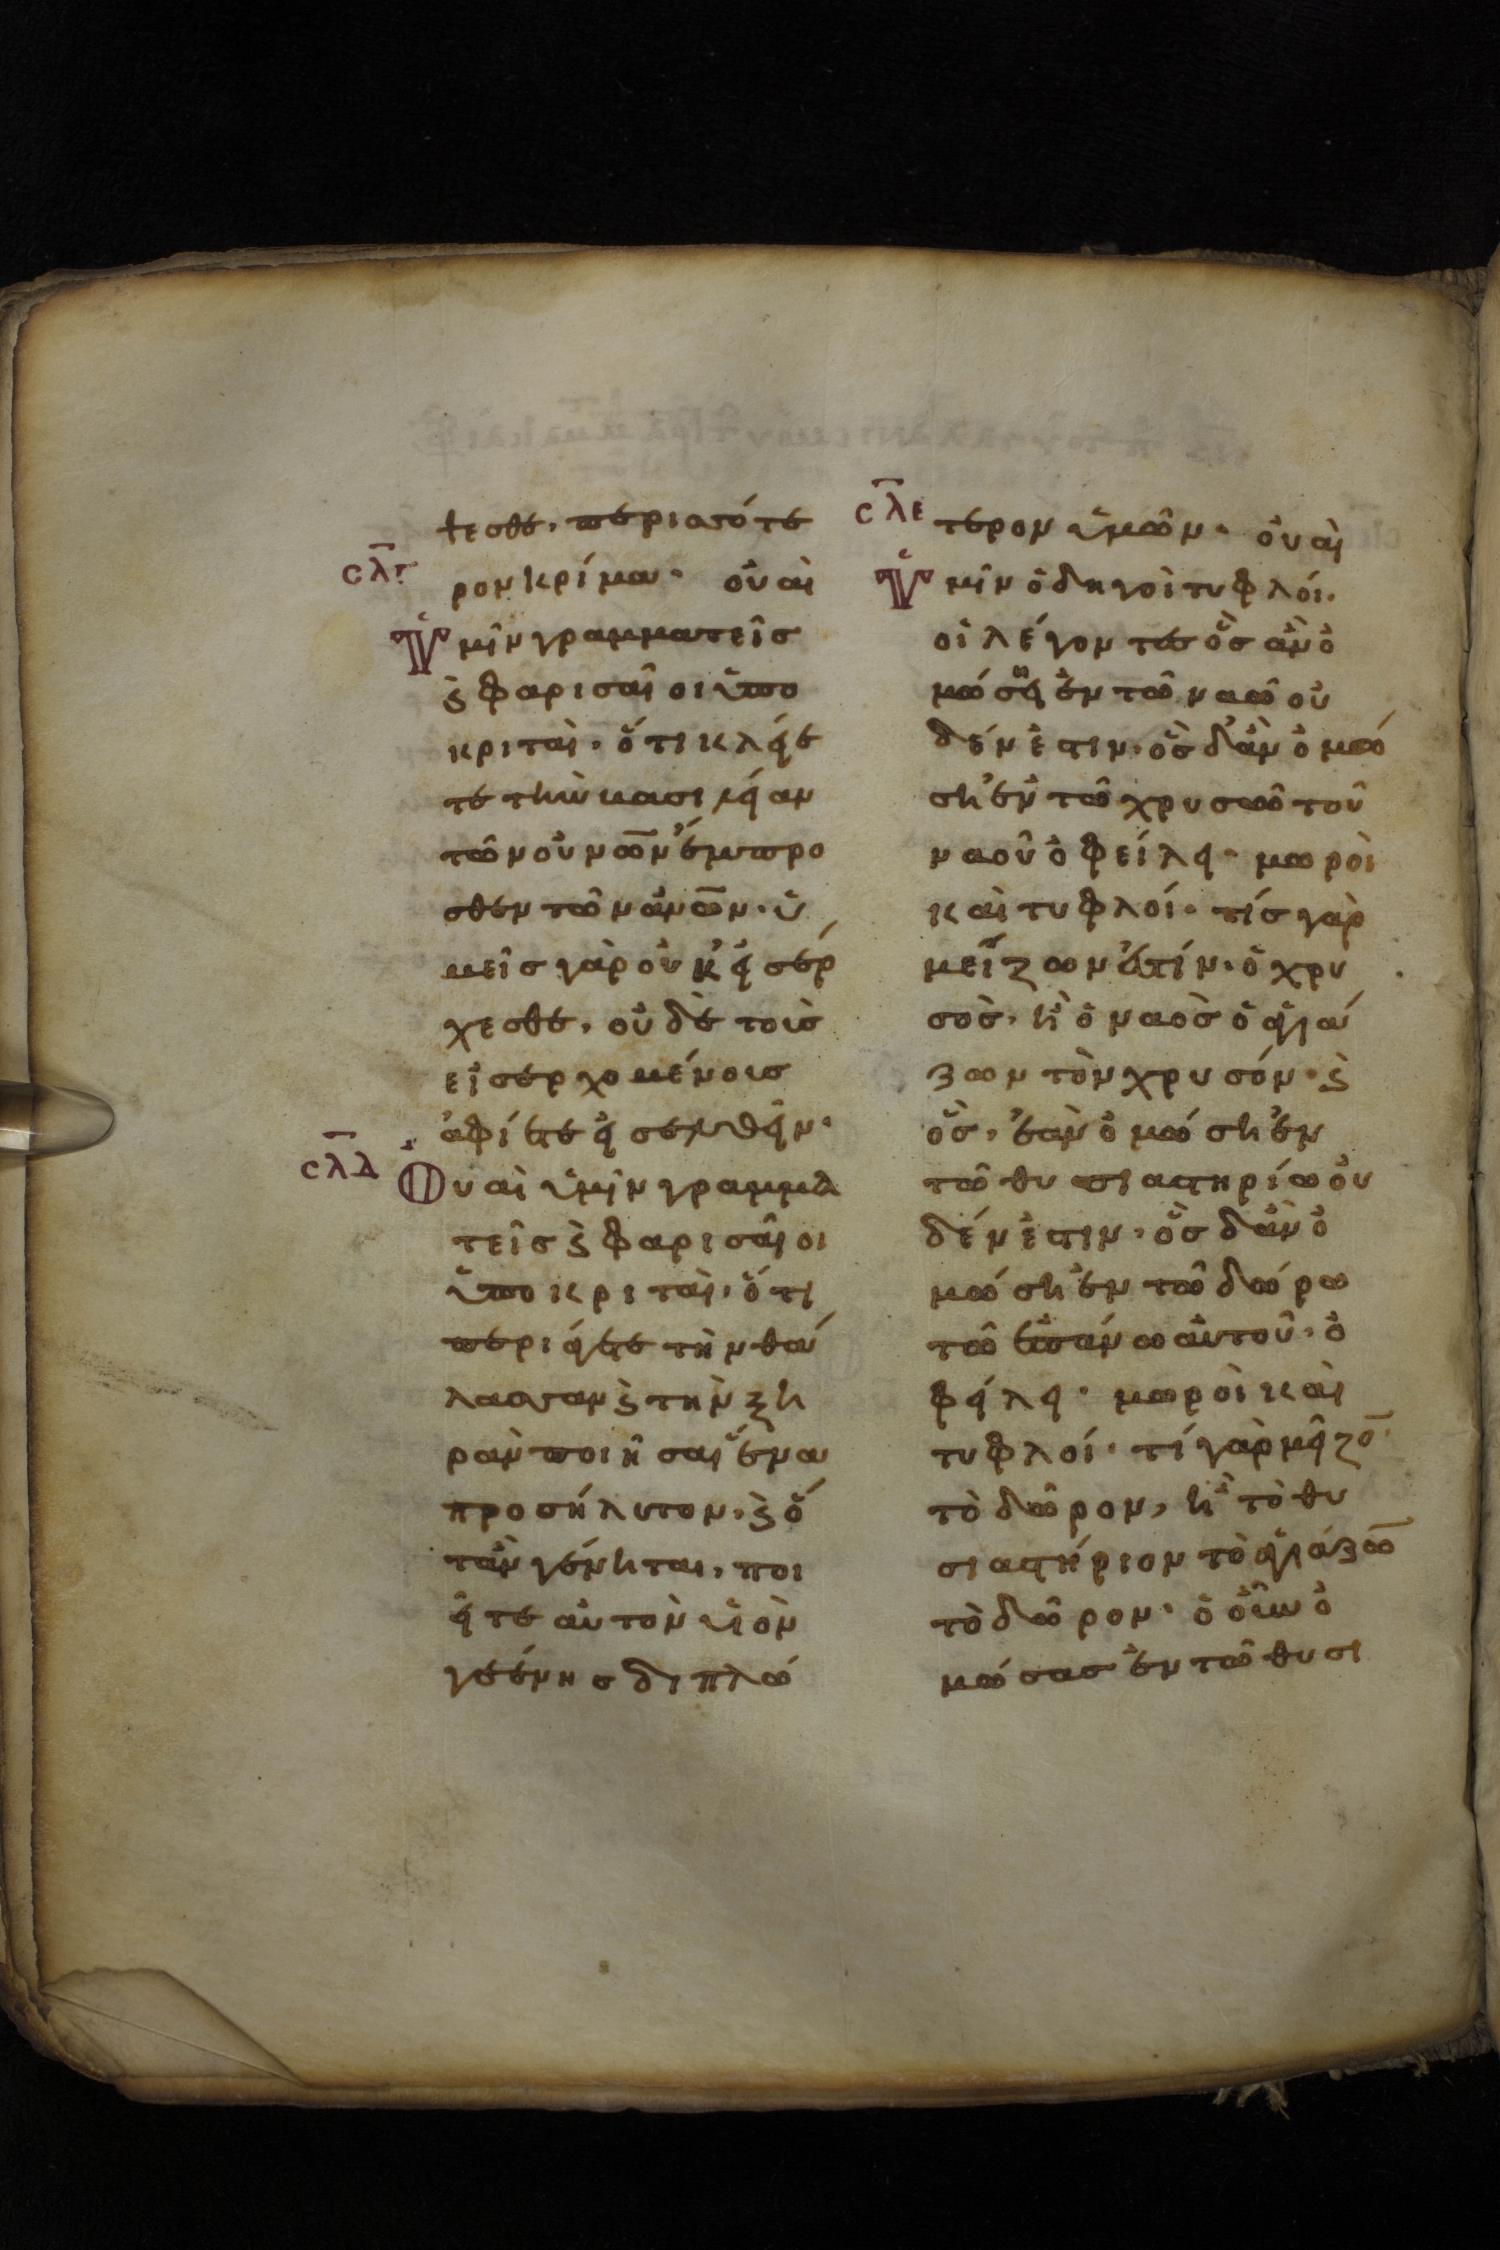 ψεσθε, περισσότε
σλγ ρον κρίμα· οὐαὶ
ὑμῖν γραμματεῖσ
ϗ φαρισαῖοι ὑπο
κριταὶ· ὅτι κλείε
τε τὴν βασιλείαν
τῶν οὐνῶν ἔμπρο
σθεν τῶν ἀνῶν· ὑ
μεῖσ γὰρ οὐκ εἰσέρ
χεσθε, οὐδὲ τοὺσ
εἰσερχομένουσ
ἀφίετε εἰσελθεῖν·
σλδ Οὐαὶ ὑμῖν γραμμα
τεῖσ ϗ φαρισαῖοι
ὑποκριταὶ· ὅτι
περιάγετε τὴν θά
λασσαν ϗ τὴν ξη
ρὰν ποιῆσαι ἕνα
προσήλυτον, ϗ ὅ
τὰν γένηται, ποι
εῖτε αὐτὸν υἱὸν
γεένησ διπλώ
σλε τερον ὑμῶν· οὐαὶ
ὑμῖν ὁδηγοὶ τυφλοί·
οἱ λέγοντεσ ὃσ ἂν ὀ
μώσῃ ἐν τῶ ναῶ οὐ
δέν ἐστιν· ὃσ δ' ἂν ὀμώ
ση ἐν τῶ χρυσῶ τοῦ
ναοῦ ὀφείλει· μωροὶ
καὶ τυφλοί· τίσ γὰρ
μείζων ἐστίν· ὁ χρυ
σὸσ, ἢ ὁ ναὸσ ὁ ἁγιά
ζων τὸν χρυσόν· ϗ
ὃσ, ἐὰν ὀμώση ἐν
τῶ θυσιαστηρίω οὐ
δέν ἐστιν· ὃσ δ' ἂν ὀ
μώση ἐν τῶ δώρω
τῶ ἐπάνω αὐτοῦ· ὀ
φείλει· μωροὶ καὶ
τυφλοί· τί γὰρ μεῖζο̅·
τὸ δῶρον, ἢ τὸ θυ
σιαστήριον τὸ ἁγιάζω̅
τὸ δῶρον· ὁ οὖν ὀ
μώσασ ἐν τῶ θυσι